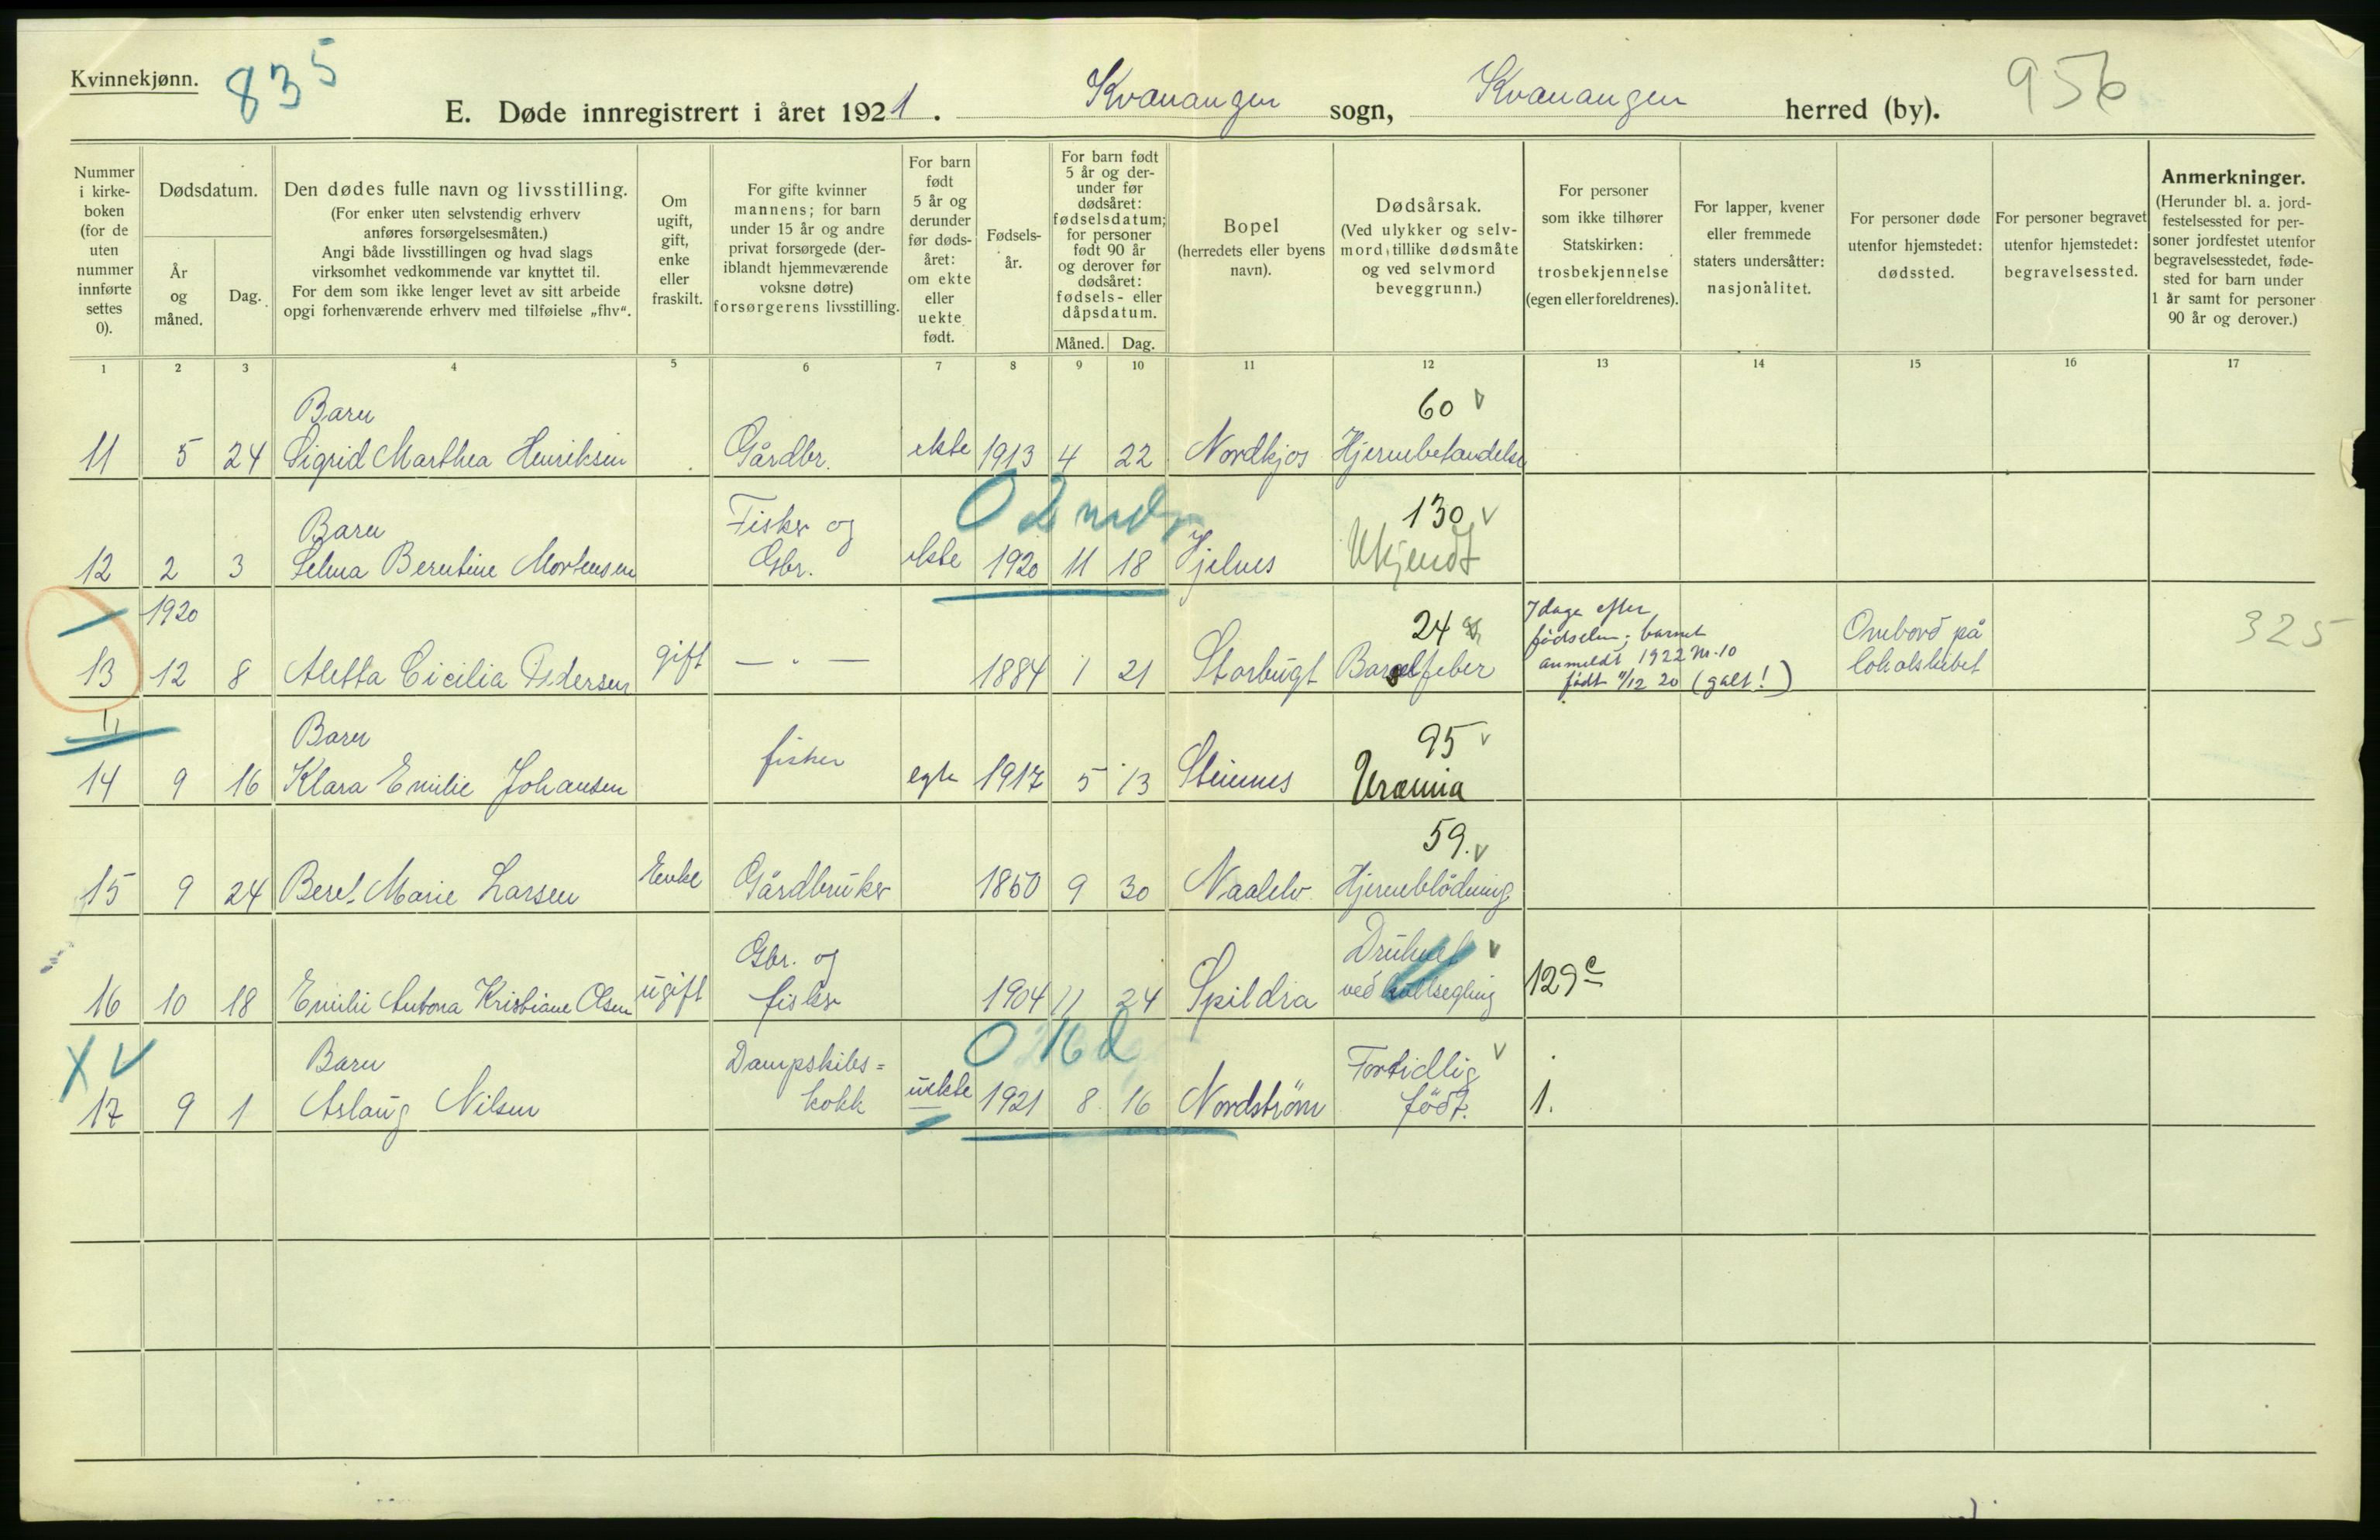 Kvinnekjønn.
835
E. Døde innregistrert i året 1921. Kvænangen sogn, Kvænangen herred (by).
956
Nummer i kirkeboken (for de uten nummer innførte settes 0).
Dødsdatum.
År og måned.
Dag.
Den dødes fulle navn og livsstilling.
(For enker uten selvstendig erhverv anføres forsørgelsesmåten.)
Angi både livsstillingen og hvad slags virksomhet vedkommende var knyttet til.
For dem som ikke lenger levet av sitt arbeide opgi forhenværende erhverv med tilføielse „fhv“.
Om ugift, gift, enke eller fraskilt.
For gifte kvinner mannens; for barn under 15 år og andre privat forsørgede (deriblandt hjemmeværende voksne døtre) forsørgerens livsstilling.
For barn født 5 år og derunder før dødsåret: om ekte eller uekte født.
Fødselsår.
For barn født 5 år og derunder før dødsåret: fødselsdatum; for personer født 90 år og derover før dødsåret: fødsels- eller dåpsdatum.
Måned. Dag.
Bopel
(herredets eller byens navn).
Dødsårsak.
(Ved ulykker og selvmord, tillike dødsmåte og ved selvmord beveggrunn.)
For personer som ikke tilhører Statskirken: trosbekjennelse (egen eller foreldrenes).
For lapper, kvener eller fremmede staters undersåtter: nasjonalitet.
For personer døde utenfor hjemstedet: dødssted.
For personer begravet utenfor hjemstedet: begravelsessted.
Anmerkninger.
(Herunder bl. a. jordfestelsessted for personer jordfestet utenfor begravelsesstedet, fødested for barn under 1 år samt for personer 90 år og derover.)
1 2 3 4 5 6 7 8 9 10 11 12 13 14 15 16 17
Barn 60 v
11 5 24 Sigrid Marthea Henriksen Gårdbr. ekte 1913 4 22 Nordkjos Hjernebetændelse
0 2 mdr
Barn Fisker og 130 v
12 2 3 Selma Berntine Mortensen Gbr. ekte 1920 11 18 Kjelnes Ukjendt
1920 24 7 dage efter fødselen; barnet anmeldt 1922 nr. 10 født 11/12 20 (galt!)
13 12 8 Aletta Cicilia Pedersen gift — „ — 1884 1 21 Storbugt Barselfeber Ombord på lokalskibet 325
Barn 95 v
14 9 16 Klara Emilie Johansen fisker egte 1917 5 13 Steinnes Uræmia
59. v
15 9 24 Beret Marie Larsen Enke Gårdbruker 1850 9 30 Naalelv Hjerneblødning
Gbr. og Druknet v
16 10 18 Emilie Antona Kristiane Olsen ugift fisker 1904 11 24 Spildra ved kullsegling 129c
0 16 d
X V Barn Dampskibs= Fortidlig v
17 9 1 Aslaug Nilsen kokk uekte 1921 8 16 Nordstrøm født. 1.